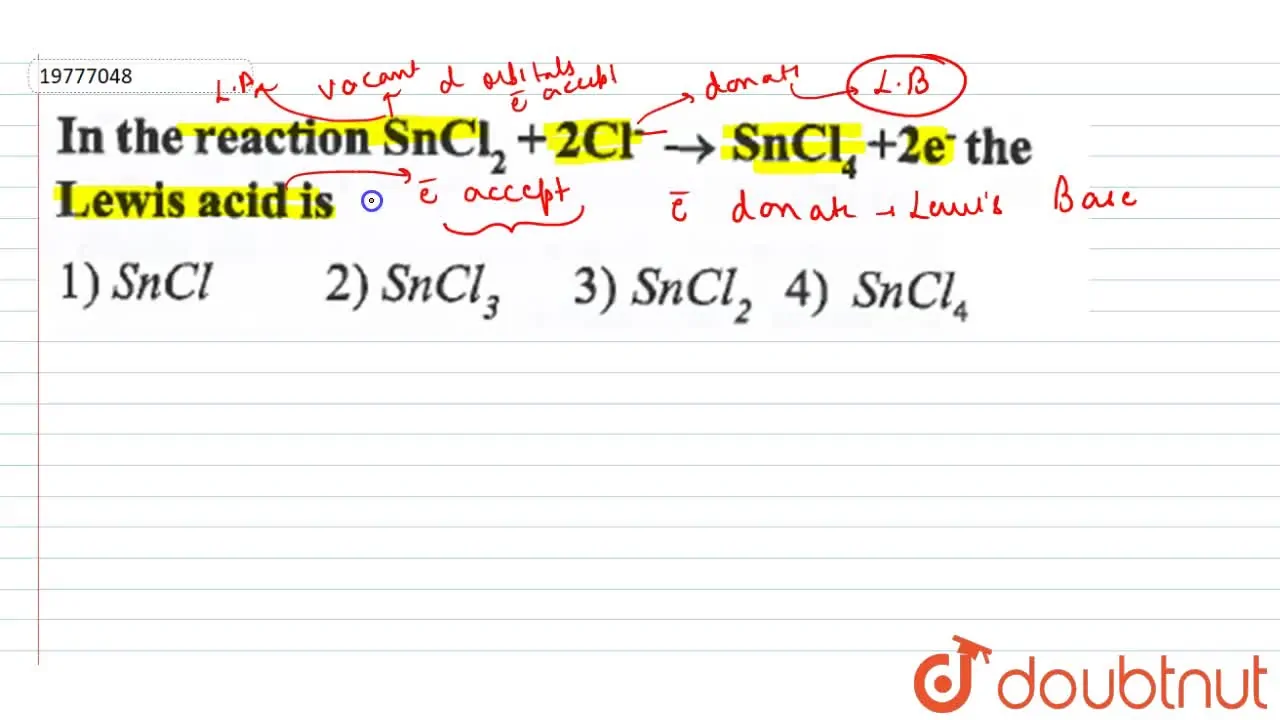 19777048
L.A vacant d orbitals donate L.B
e⁻ accept
In the reaction SnCl₂ + 2Cl⁻ → SnCl₄ +2e⁻ the
Lewis acid is e⁻ accept e⁻ donate → Lewis Base
1) SnCl 2) SnCl₃ 3) SnCl₂ 4) SnCl₄
doubtnut